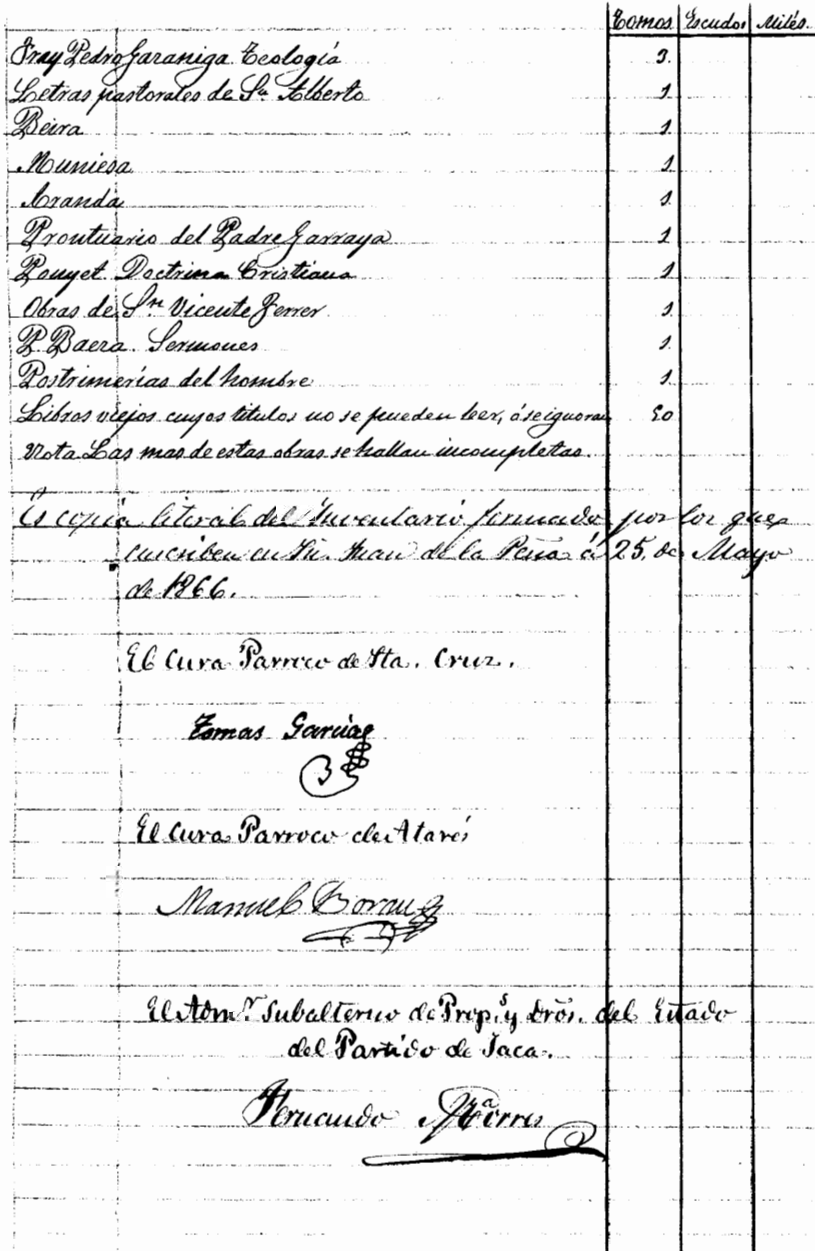 Tomos Escudos Milés.
Fray Pedro Garaniga Teología 3.
Letras pastorales de Sn. Alberto 1
Beira 1
Muniesa 1
Aranda 1.
Prontuario del Padre Larraya 1
Pouget Doctrina Cristiana 1
Obras de Sn. Vicente Ferrer. 1
P. Baera. Sermones 1.
Postrimerías del hombre 1.
Libros viejos cuyos títulos no se pueden leer, ó se ignoran 50
Nota Las mas de estas obras se hallan incompletas.
Es copia literal del Inventario formado por los que
suscriben en Sn. Juan de la Peña á 25. de Mayo
de 1866.
El Cura Parroco de Sta. Cruz.
Tomas Garcia
El Cura Parroco de Atarés
Manuel Borau
El Admr. Subalterno de Props. y Dros. del Estado
del Partido de Jaca.
Fernando Ma Torres